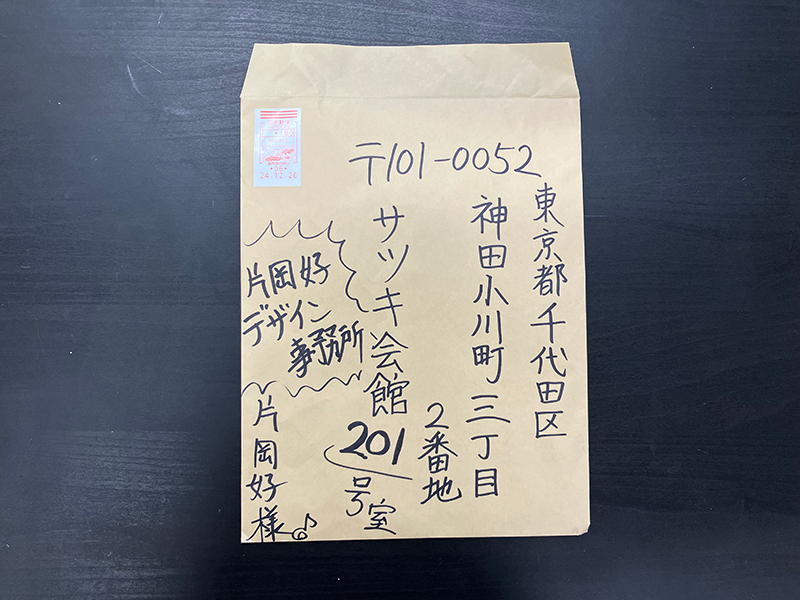 〒101-0052
東京都千代田区
神田小川町三丁目
2番地
サツキ会館
201
号室
片岡好
デザイン
事務所
片岡好様♪
24.12.26